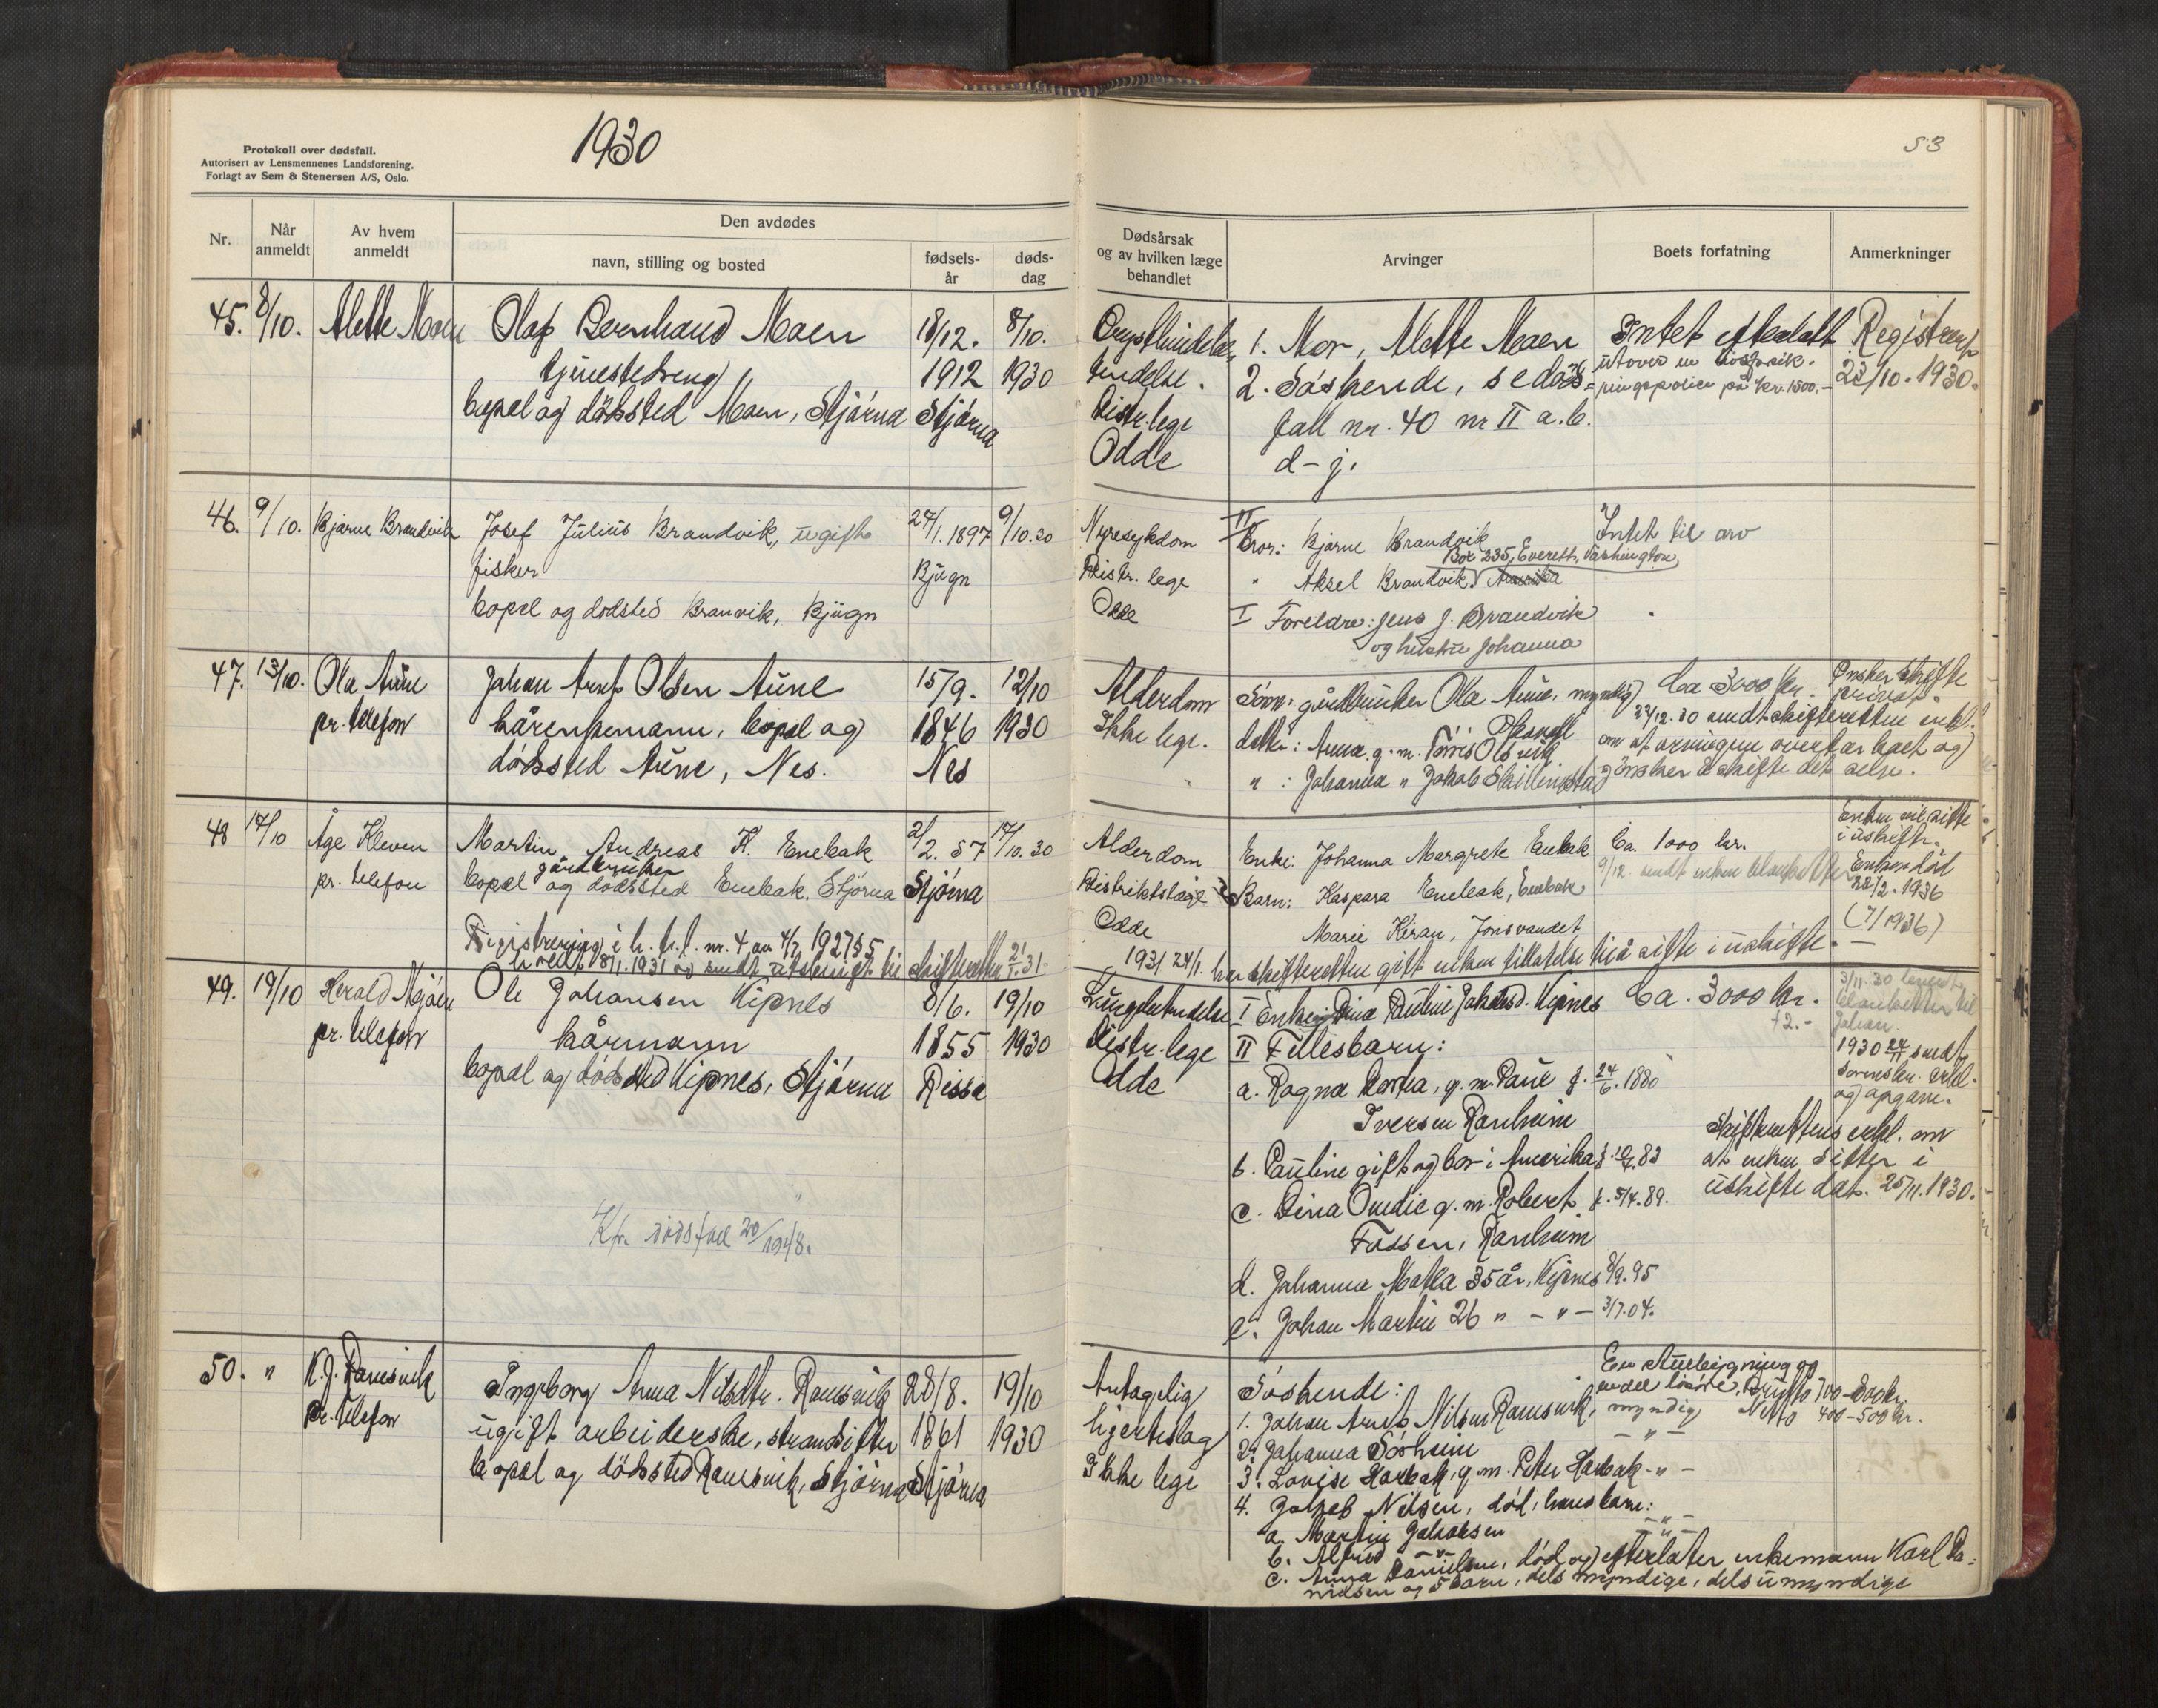 Protokoll over dødsfall.
Autorisert av Lensmennenes Landsforening.
Forlagt av Sem & Stenersen A/S, Oslo.
1930
53
Nr.
Når anmeldt
Av hvem anmeldt
Den avdødes
navn, stilling og bosted
fødsels-år
døds-dag
Dødsårsak og av hvilken læge behandlet
Arvinger
Boets forfatning
Anmerkninger
45. 8/10. Alette Moen Olaf Bernhard Moen 18/12. 8/10.
tjenestedreng 1912 1930
bopel og dødssted Moen, Stjørna Stjørna
Brysthindebe-
tendelse.
Distr. lege
Odde
1. Mor, Alette Moen
2. Søskende, se døds-
fall nr. 40 nr II a. b.
d - j.
Intet efterlatt
utover en livsforsik-
ringspolice på kr. 1500.-
Registrert
23/10. 1930.
46. 9/10. Bjarne Brandvik Josef Julius Brandvik, ugift 24/1. 1897 9/10.30
fisker Bjugn
bopel og dødsted Branvik, Bjugn
Nyresykdom
Distr. lege
Odde
II Bror: Bjarne Brandvik
Box 235, Everett, Washington
" Aksel Brandvik, Amerika
I Foreldre: Jens J. Brandvik
og hustru Johanna
Intet til arv
47. 13/10. Ola Aune Johan Arnt Olsen Aune 15/9. 12/10
pr. telefon kårenkemann, bopel og 1846 1930
dødssted Aune, Nes. Nes
Alderdom
Ikke lege.
Sønn: gårdbruker Ola Aune, myndig
datter: Anna g. m.
" : Johanna " Jakob
Ca 3000 kr.
Ønsker skifte
privat
22/12. 30 sendt skifteretten erkl.
om at arvingene overtar boet og
ønsker å skifte det selv.
48 17/10 Åge Kleven Martin Andreas K. Enebak 2/2. 57 17/10. 30
gårdbruker
pr. telefon bopel og dødssted Enebak, Stjørna Stjørna
Registrering i h. t. l. nr. 4 av 4/7 1927 § 5
8/1. 1931 og sendt utskrift til skifteretten 2/1. 31.
Alderdom
Distriktslæge
Odde
Enke: Johanna Margrete Enebak
Barn: Kaspara Enebak, Enebak
Marie Kiran, Jonsvandet
1931 24/1. har skifteretten gitt enken tillatelse til å sitte i uskifte.
Ca. 1000 kr.
9/12. sendt enken
Enken vil sitte
i uskifte.
Enken død
22/2. 1936
(7/1936)
49. 19/10 Herald Ole Johansen Kipnes 8/6. 19/10
pr. telefon kårmann 1855 1930
bopel og dødssted Kipnes, Stjørna Rissa
Kfr. dødsfall 20/1948.
Lungebetendelse
Distr. lege
Odde
I Enke: Dina Pauline Johansd. Kipnes
II Fellesbarn:
a. Ragna Marta, g. m. Paul f. 24/6. 1880
Iversen Ranheim
b. Pauline gift og bor i Amerika f. 83
c. Dina g. m. Robert f. 5/4. 89.
Fossen, Ranheim
d. Johanna 35 år, Kipnes 8/9. 95
e. Johan Martin 26 " - " - 3/7. 04.
Ca. 3000 kr.
3/11. 30
Johan.
1930 24/11 sendt
erkl.
og opgave.
Skifterettens erkl. om
at enken sitter i
uskifte dat. 25/11. 1930.
50. " K. J. Ramsvik Ingeborg Anna Nilsdtr. Ramsvik 28/8. 19/10
pr. telefon ugift arbeiderske, strandsitter 1861 1930
bopel og dødssted Ramsvik, Stjørna Stjørna
Antagelig
hjerteslag
Ikke lege
Søskende:
1. Johan Arnt Nilsen Ramsvik, myndig
2. Johanna Sørheim - " -
3. Lovise Harbak, g. m. Peter Harbak - " -
4. Jakob Nilsen, død, hans barn:
a. Martin Jakobsen - " -
b. Alfred - " - - " -
c. Anna Danielsen, død og efterlater enkemann Karl Da-
nielsen og 5 barn, dels myndige, dels umyndige
En stuebygning og
endel løsøre, Brutto 700-800 kr.
Netto 400-500 kr.